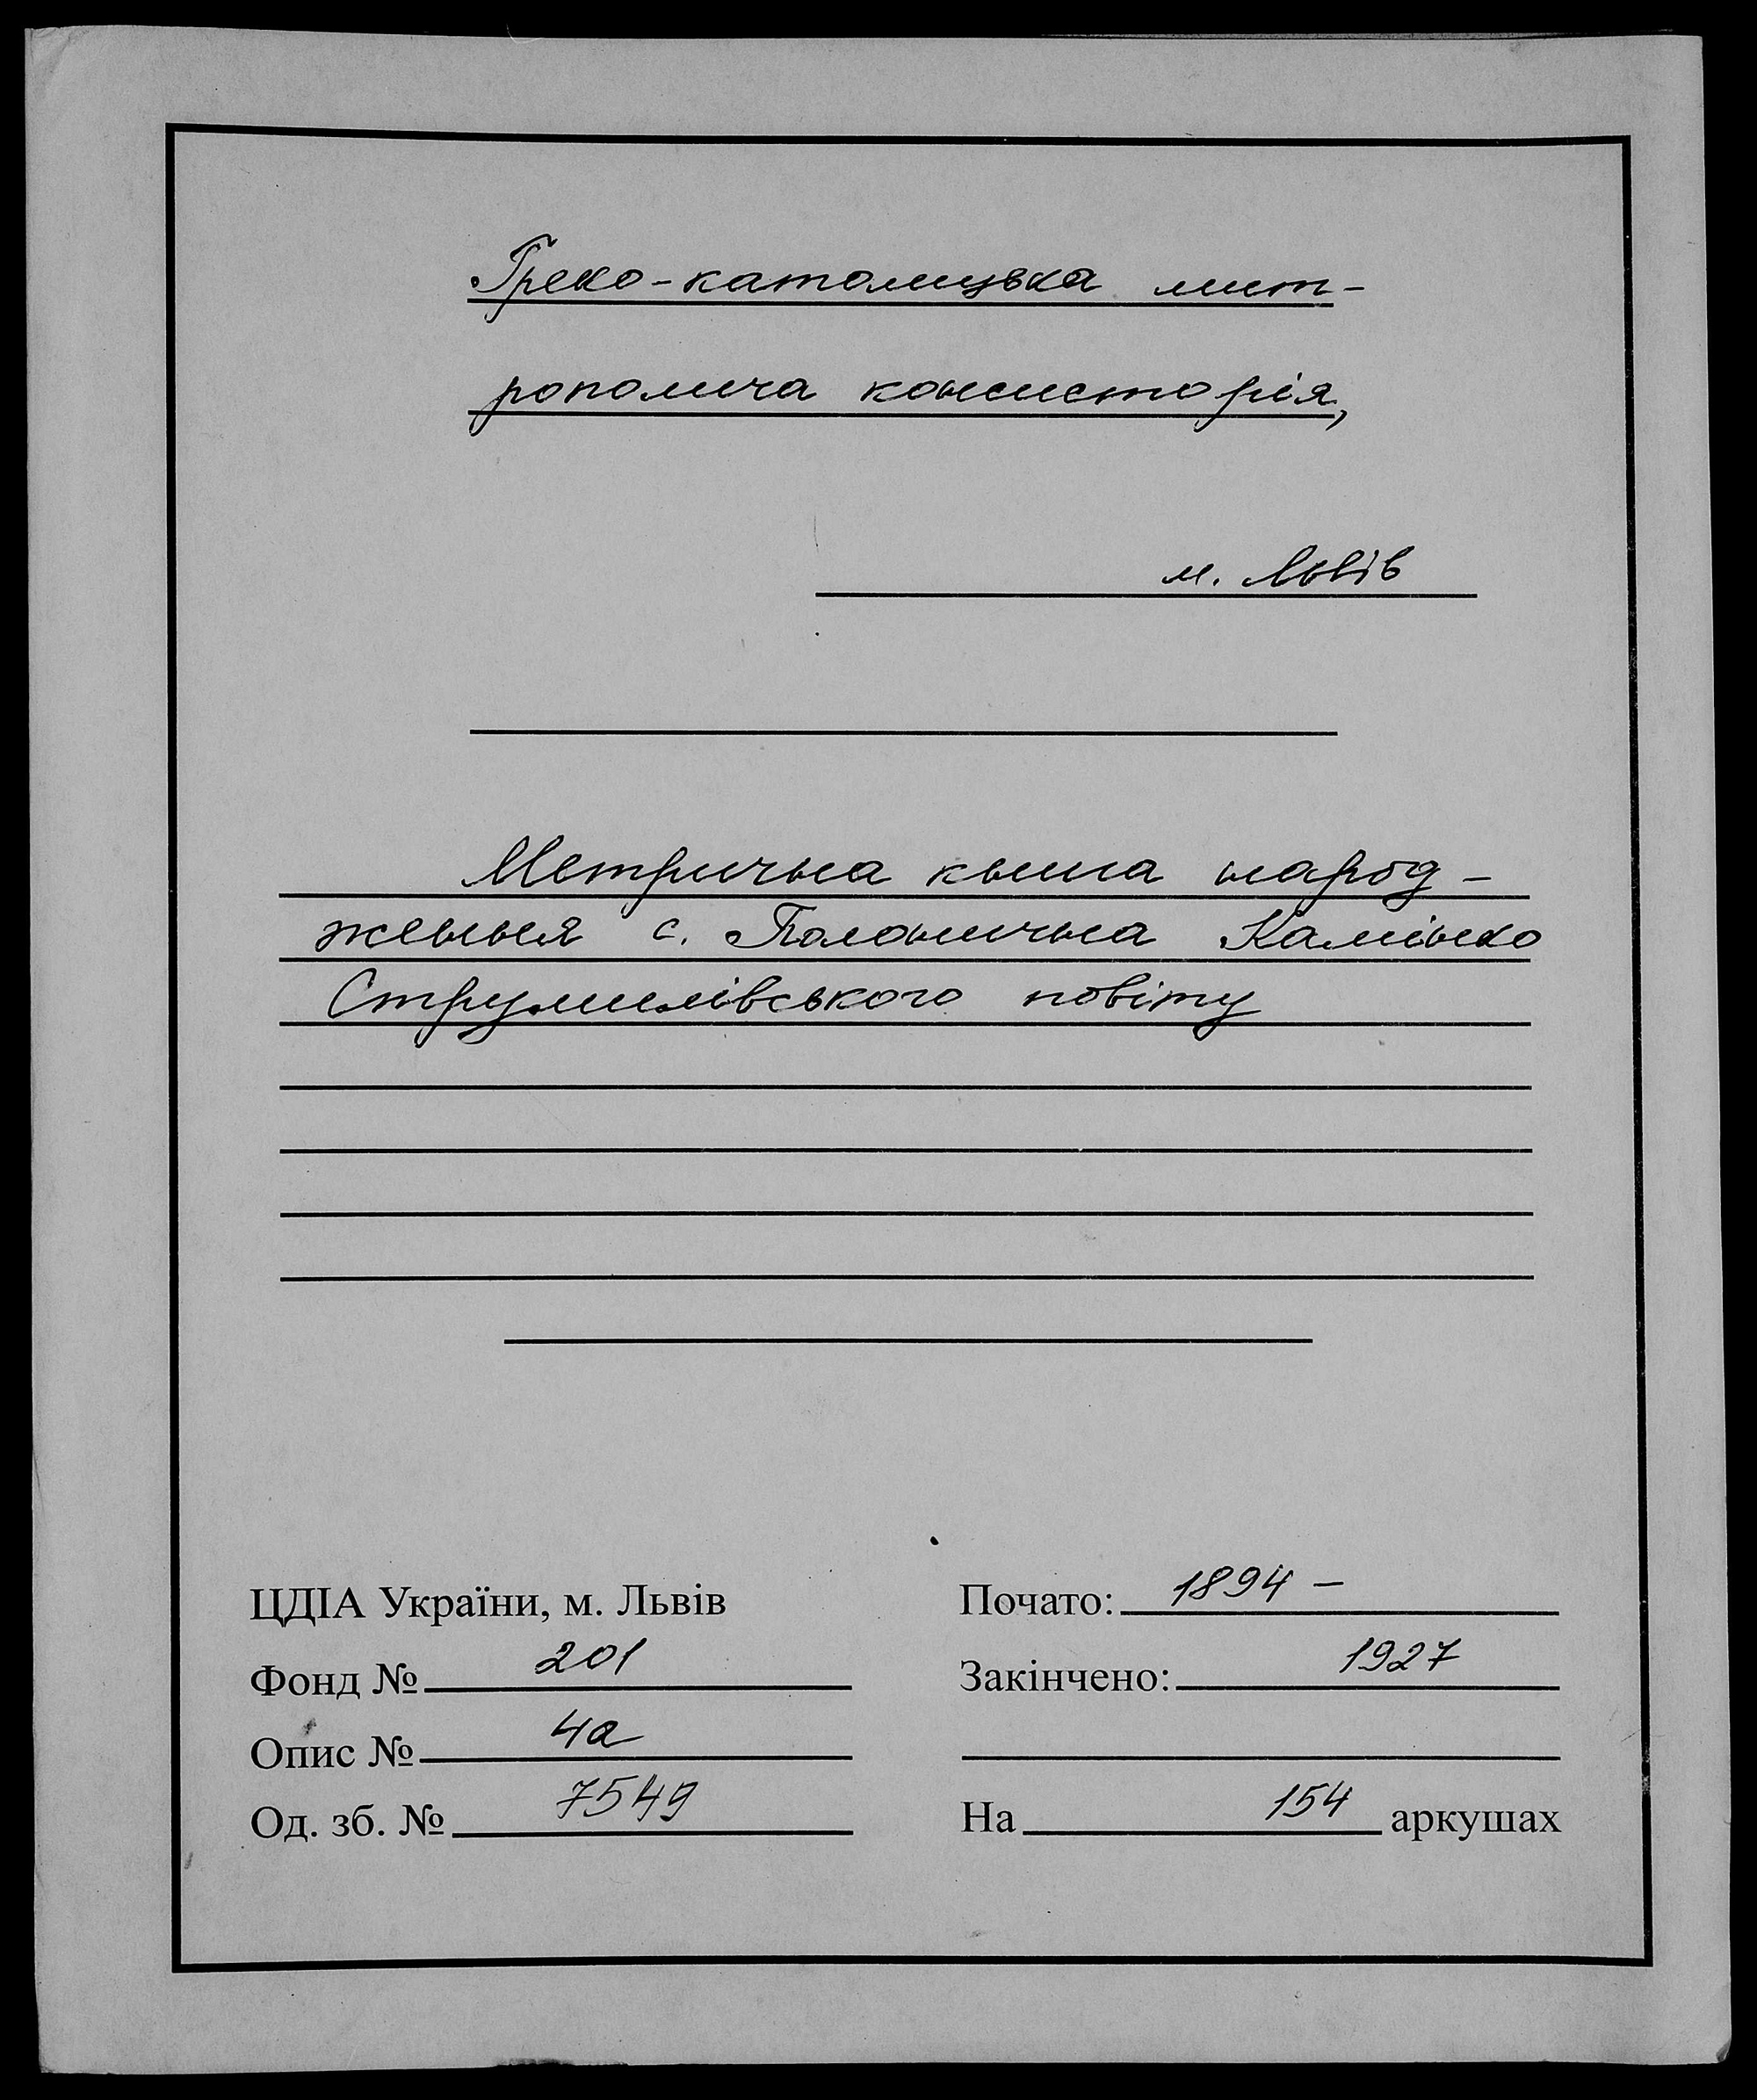 Греко-католицька мит-
рополича консисторія,
м. Львів
Метрична книга народ-
ження с. Полонична Камінко
Струмилівського повіту
ЦДІА України, м. Львів
Фонд № 201
Опис № 4а
Од. зб. № 7549
Почато: 1894 –
Закінчено: 1927
На 154 аркушах